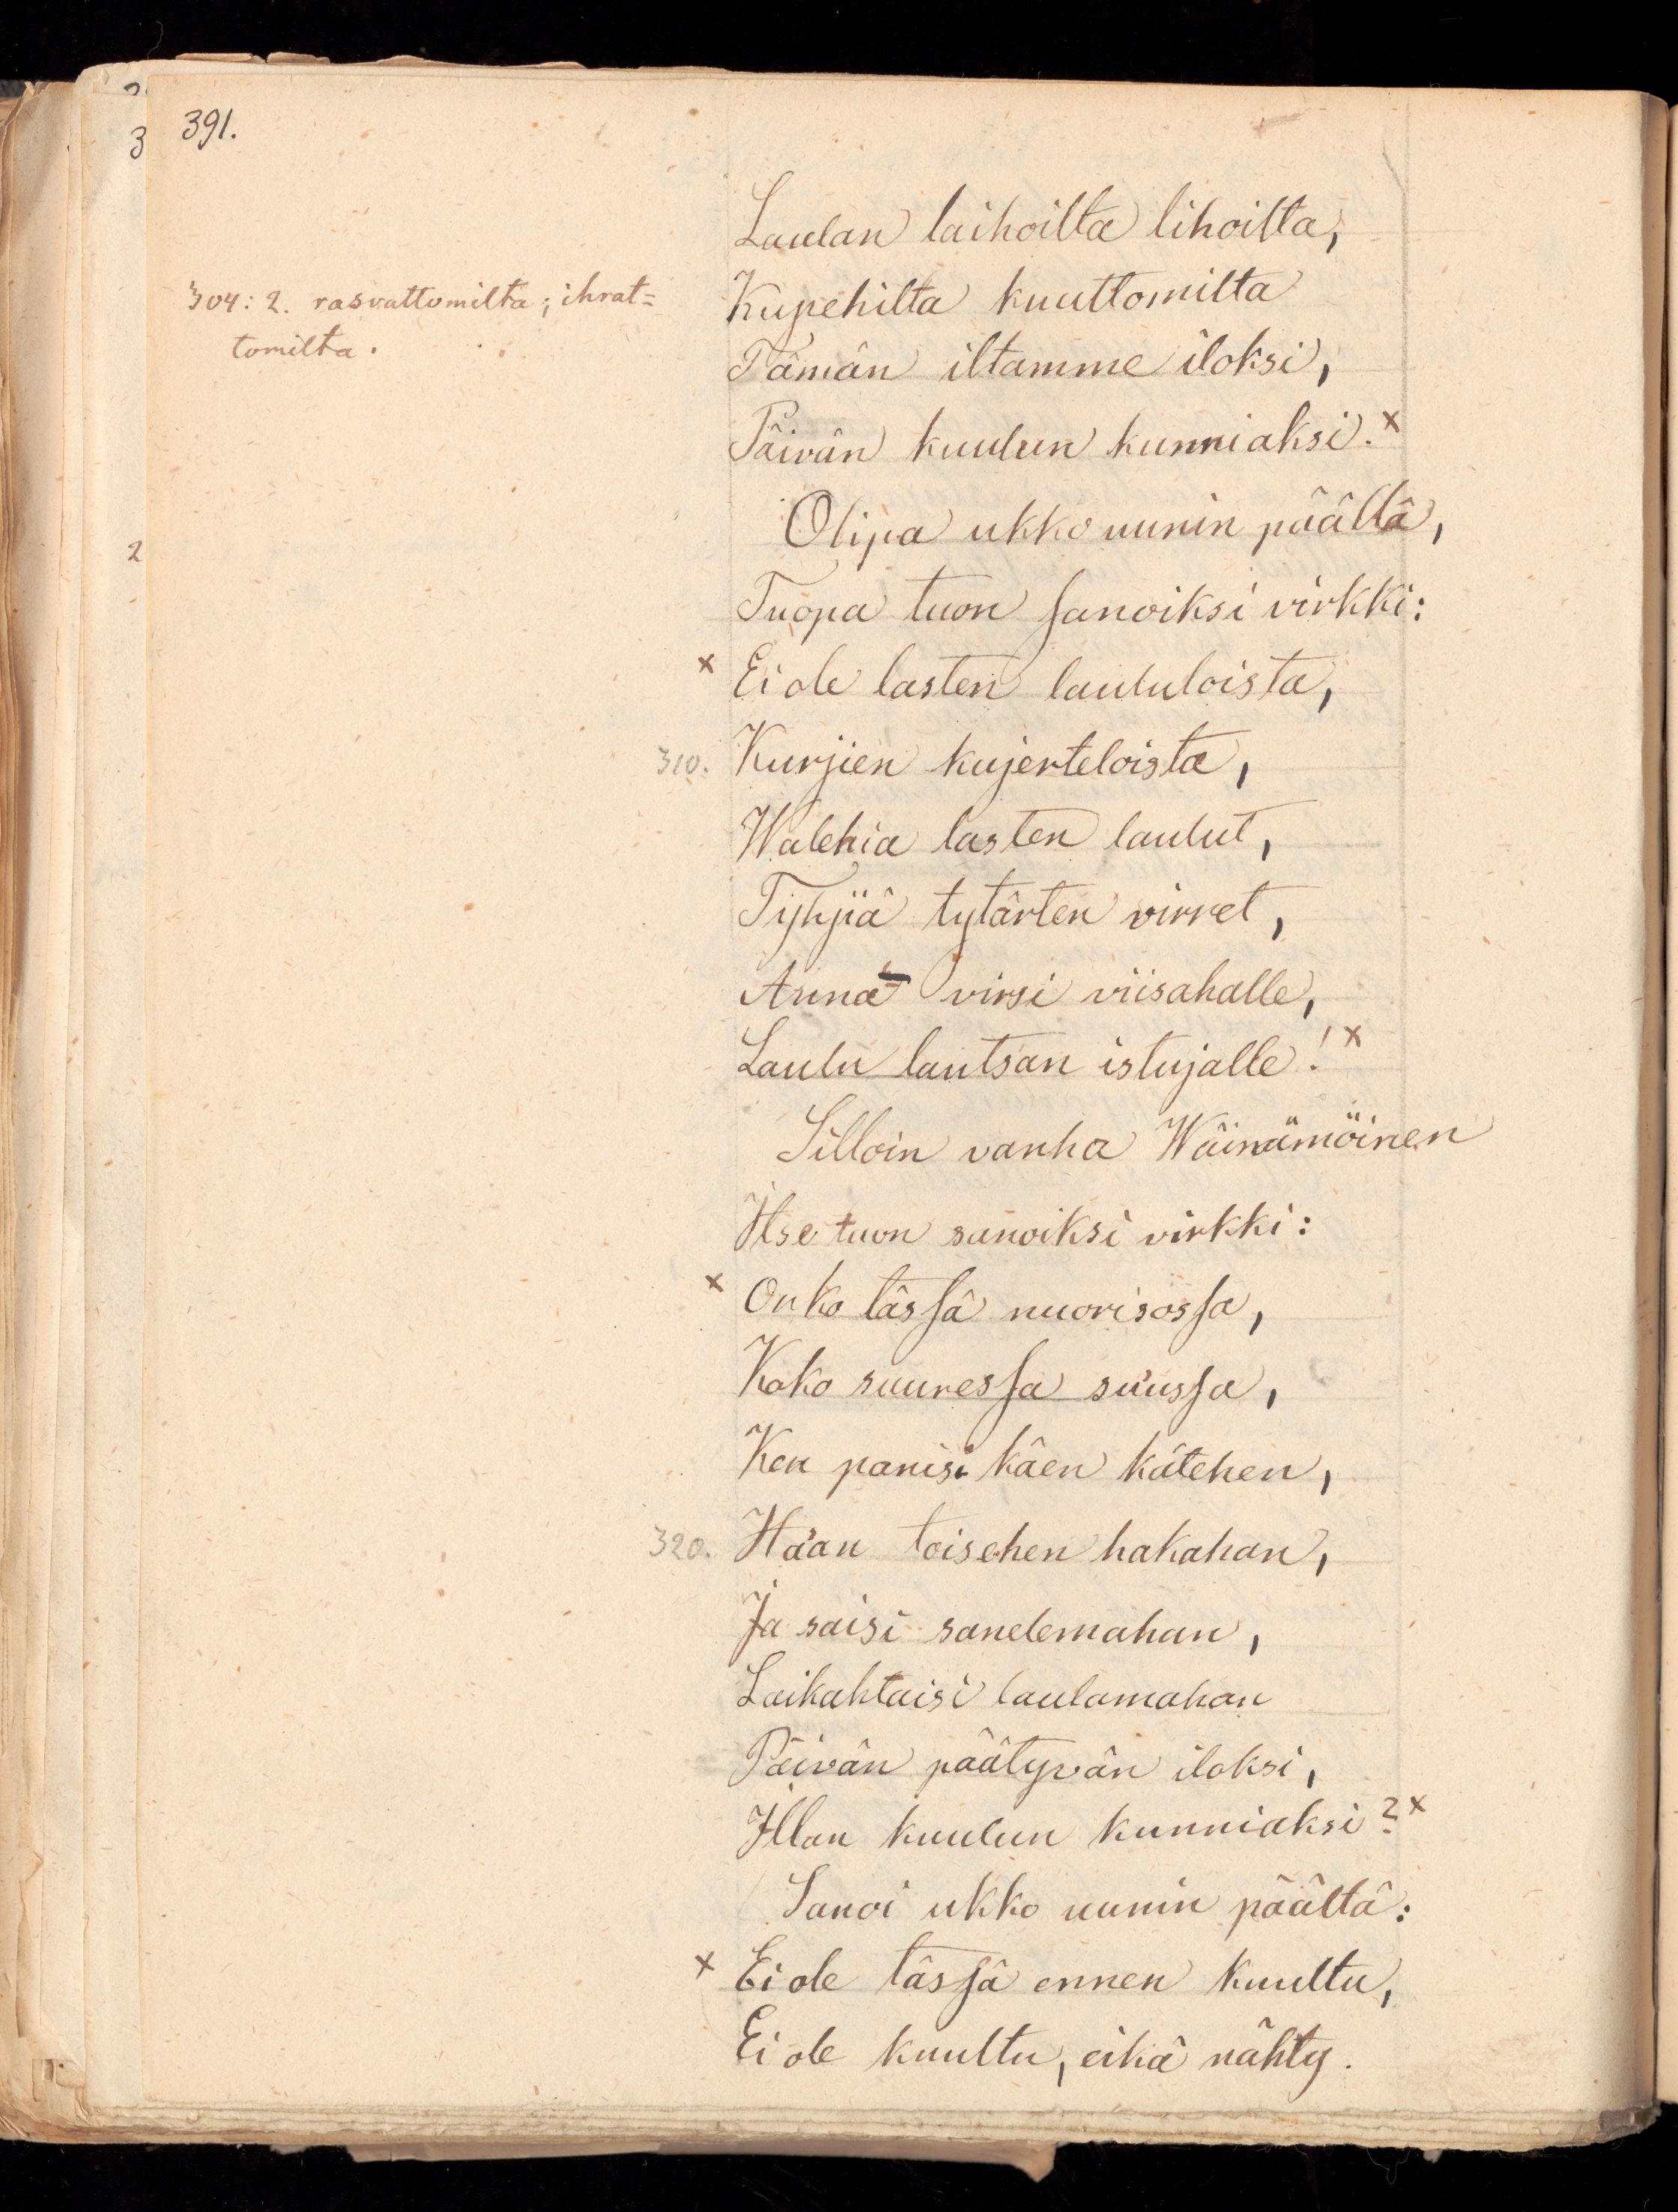 391.
3
2
Laulan laihoilta lihoilta,
304: 2. rasvattomilta; ihrat=
tomilta.
Kupehilta kuuttomilta
Tämän iltamme iloksi,
Päivän kuulun kunniaksi. x
Olipa ukko uunin päältä,
Tuopa tuon sanoiksi virkki:
x Ei ole lasten laululoista,
310. Kurjien kujerteloista,
Walehia lasten laulut,
Tyhjiä tytärten virret,
Anna virsi viisahalle,
Laulu lautsan istujalle! x
Silloin vanha Wäinämöinen
Itse tuon sanoiksi virkki:
x Onko tässä nuorisossa,
Koko suuressa su'ussa,
Ken panisi käen kätehen,
320. Ha'an toisehen hakahan,
Ja saisi sanelemahan,
Laikahtaisi laulamahan
Päivän päätyvän iloksi,
Illan kuulun kunniaksi? x
Sanoi ukko uunin päältä:
x Ei ole tässä ennen kuultu,
Ei ole kuultu, eikä nähty.